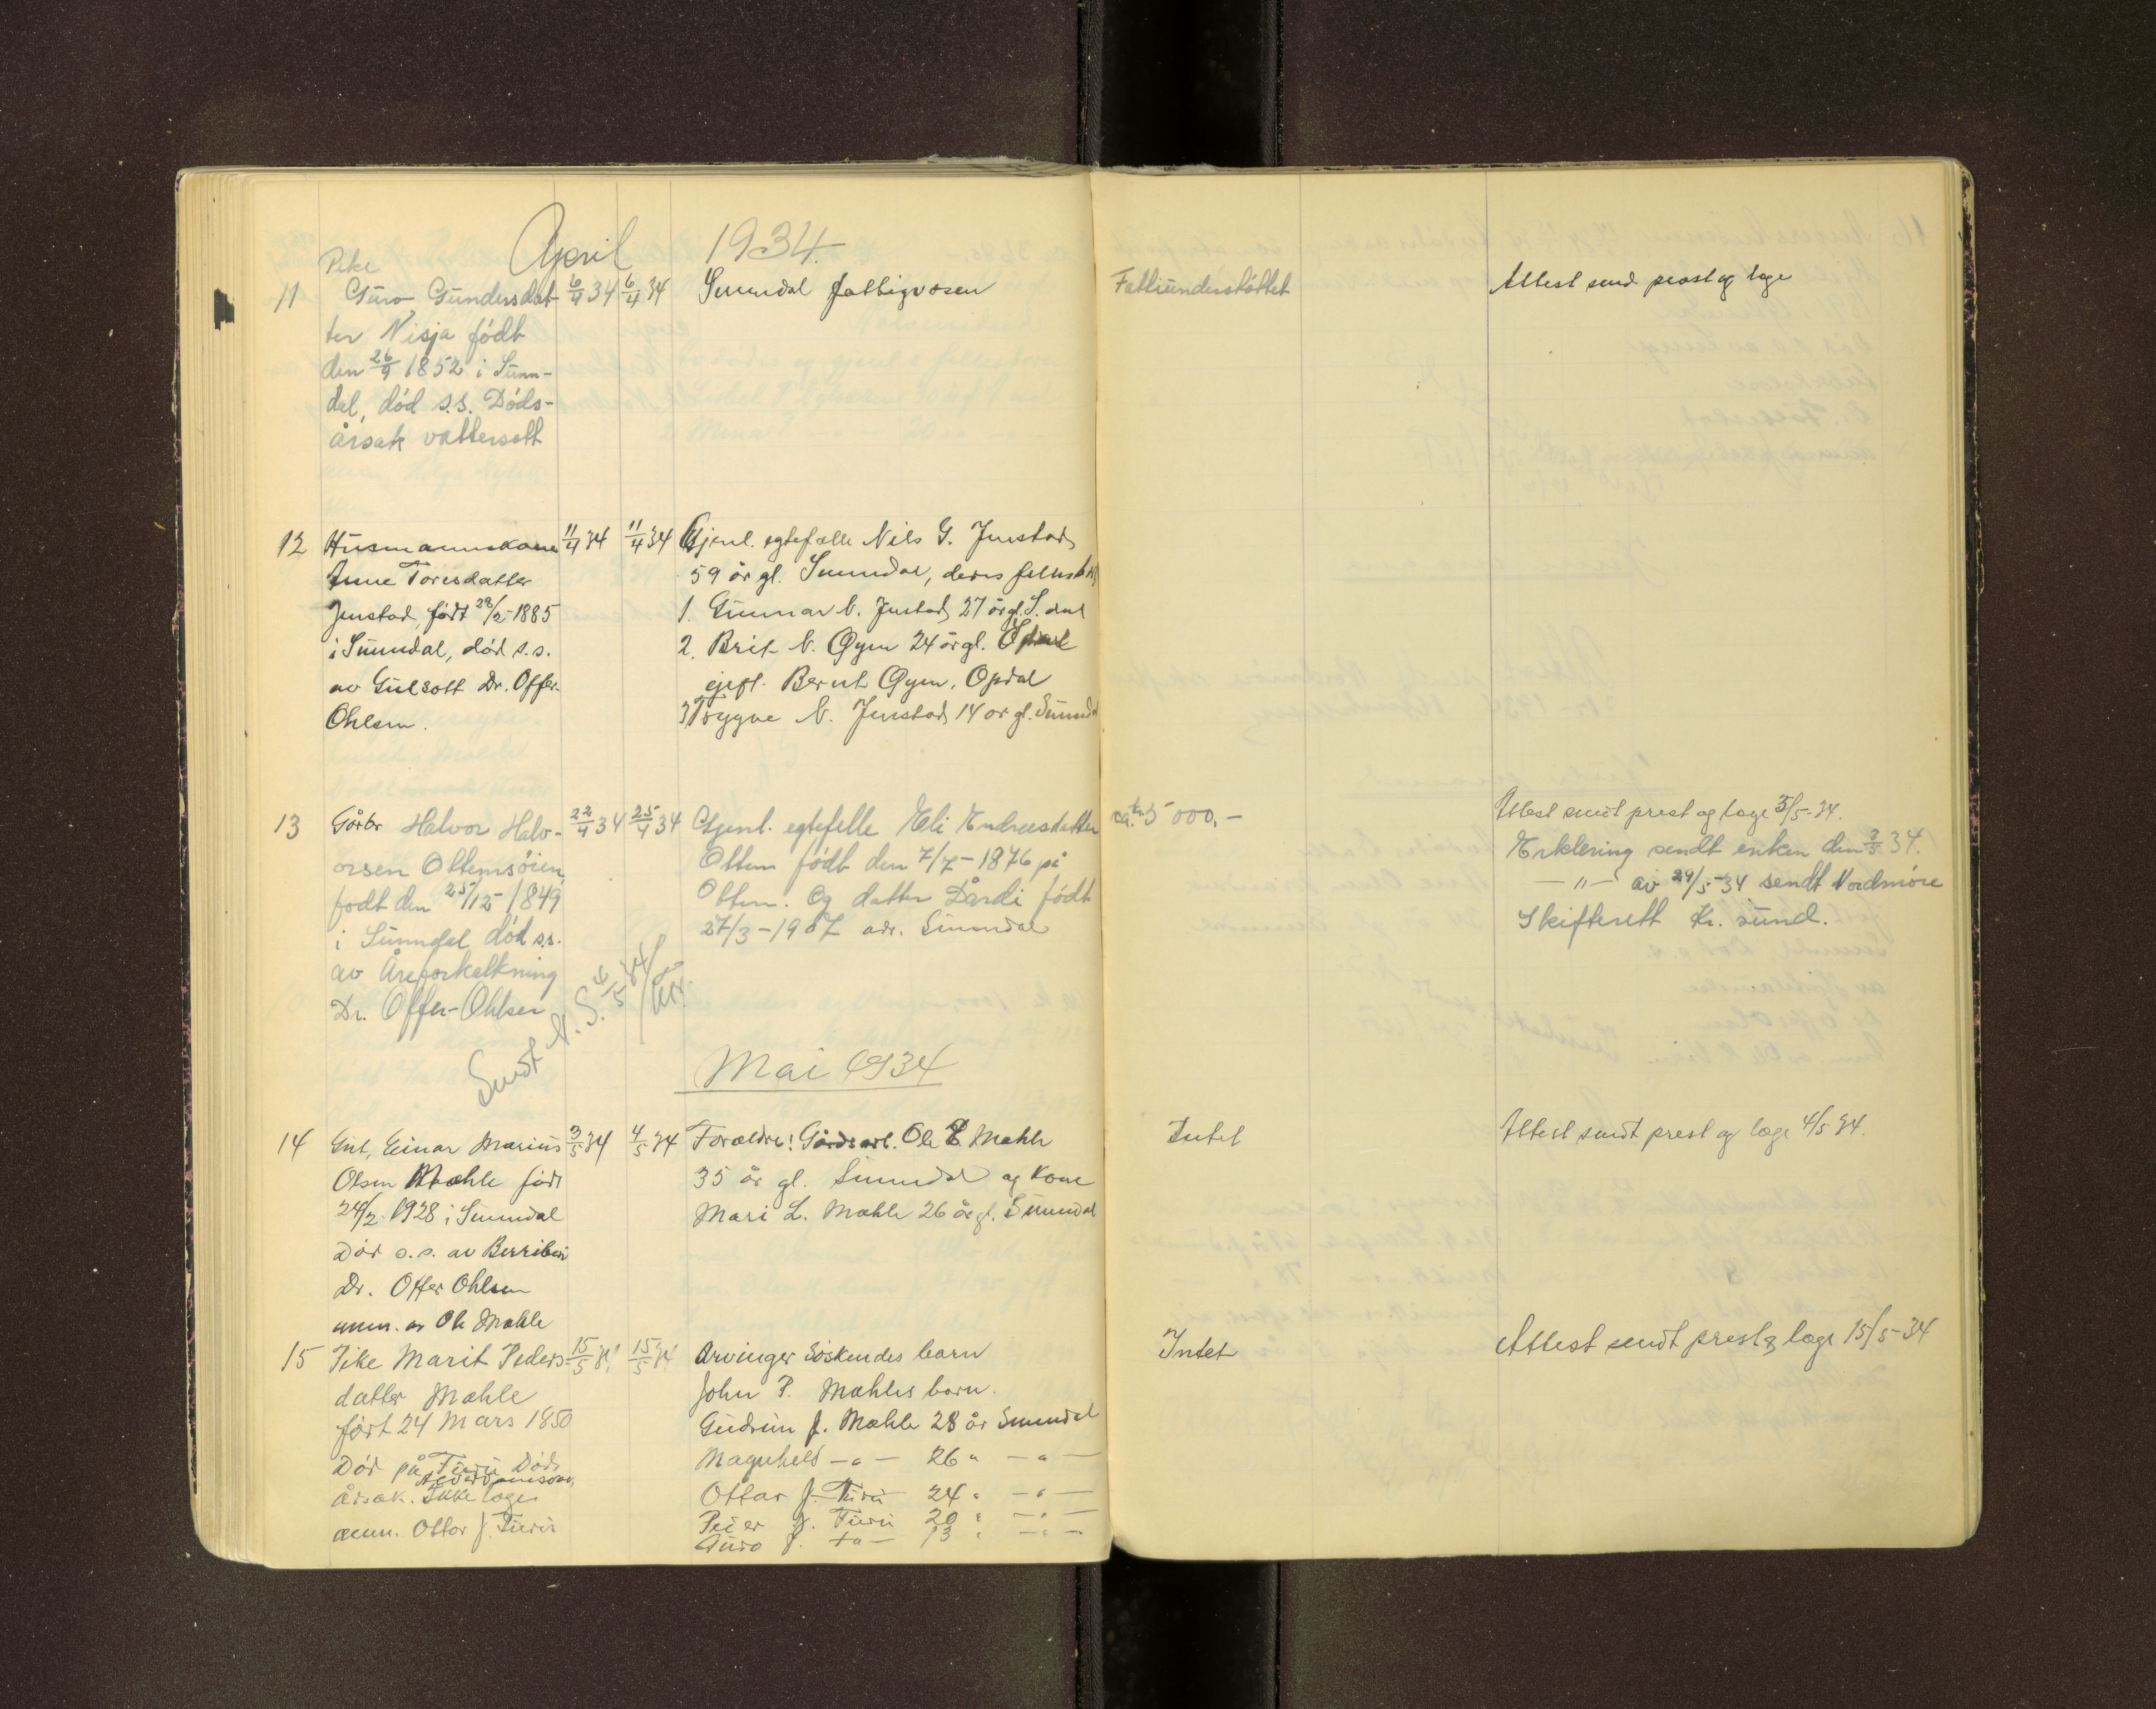 April 1934.
Pike
11 Guro Gundersdat- 6/4 34 6/4 34 Sunndal fattigvesen Fattiunderstøttet Attest send prest og læge
ter Nisja født
den 26/9 1852 i Sunn-
dal, død s.s. Døds-
årsak vattersott
12 Husmannskone 11/4 34 11/4 34 Gjenl. egtefælle Nils G. Jenstad
Anne Toresdatter 59 år gl. Sunndal, deres fellesb
Jenstad, født 28/2-1885 1. Gunnar N. Jenstad 27 år gl. S.dal
i Sunndal, død s.s. 2. Brit N. Gyen 24 år gl. Opdal
av Gulsott Dr. Offer- gift. Bernt Gyen, Opdal
Ohlsen. 3 Trygve N. Jenstad 14 år gl. Sunndal
13 Gårbr Halvor Halv- 22/4 34 25/4 34 Gjenl. egtefelle Eli Endresdatter ca. kr 5 000,- Attest sendt prest og læge 3/5-34.
orsen Ottemsøien, Ottem født den 7/7-1876 på Erklering sendt enken den 3/5 34.
født den 25/12 1849 Ottem. Og datter Dårdi født —"— av 24/5-34 sendt Nordmøre
i Sunndal død s.s. 27/3-1907 adr. Sunndal Skifterett Kr. sund.
av Åreforkalkning
Dr. Offer-Ohlsen
Sendt N. S. 4/5 34
Mai 1934
14 Gut, Einar Marius 3/5 34 4/5 34 Forældre: Gårdsarb. Ole Mæhle Intet Attest sendt prest og læge 4/5 34.
Olsen Mæhle født 35 år gl. Sunndal og kone
24/2 1928 i Sunndal Mari L. Mæhle 26 år gl. Sunndal
Død s.s. av Berriberi
Dr. Offer Ohlsen
anm. av Ole Mæhle
15 Pike Marit Peders- 15/5 34 15/5 34 Arvinger Søskendes barn Intet Attest sendt prest og læge 15/5-34
datter Mæhle John P. Mæhles barn.
født 24 Mars 1850 Gudrun J. Mæhle 28 år Sunndal
Død på Furu Døds Magnhild —"— 26 " —"—
Alderdomssvak.
årsak. Ikke læge Ottar J. Furu 24 " —"—
anm. Ottar J. Furu Peder J. Furu 20 " —"—
Guro J. —"— 13 " —"—